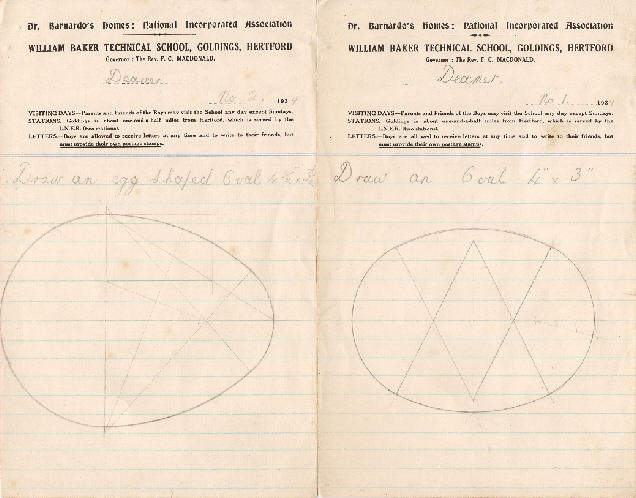 Dr. Barnardo's Homes: National Incorporated Association
WILLIAM BAKER TECHNICAL SCHOOL, GOLDINGS, HERTFORD
Governor: The Rev. F. C. MACDONALD.
Deamer
No. 2. 1934
VISITING DAYS—Parents and Friends of the Boys may visit the School any day except Sundays.
STATIONS. Goldings is about one-and-a-half miles from Hertford, which is served by the
L.N.E.R. (two stations).
LETTERS.—Boys are allowed to receive letters at any time and to write to their friends, but
must provide their own postage stamps.
Draw an egg shaped Oval 4½ x 3½
Dr. Barnardo's Homes: National Incorporated Association
WILLIAM BAKER TECHNICAL SCHOOL, GOLDINGS, HERTFORD.
Governor: The Rev. F. C. MACDONALD.
Deamer.
No. 1. 1934
VISITING DAYS—Parents and Friends of the Boys may visit the School any day except Sundays.
STATIONS. Goldings is about one-and-a-half miles from Hertford, which is served by the
L.N.E.R. (two stations).
LETTERS.—Boys are allowed to receive letters at any time and to write to their friends, but
must provide their own postage stamps.
Draw an Oval 4" x 3"